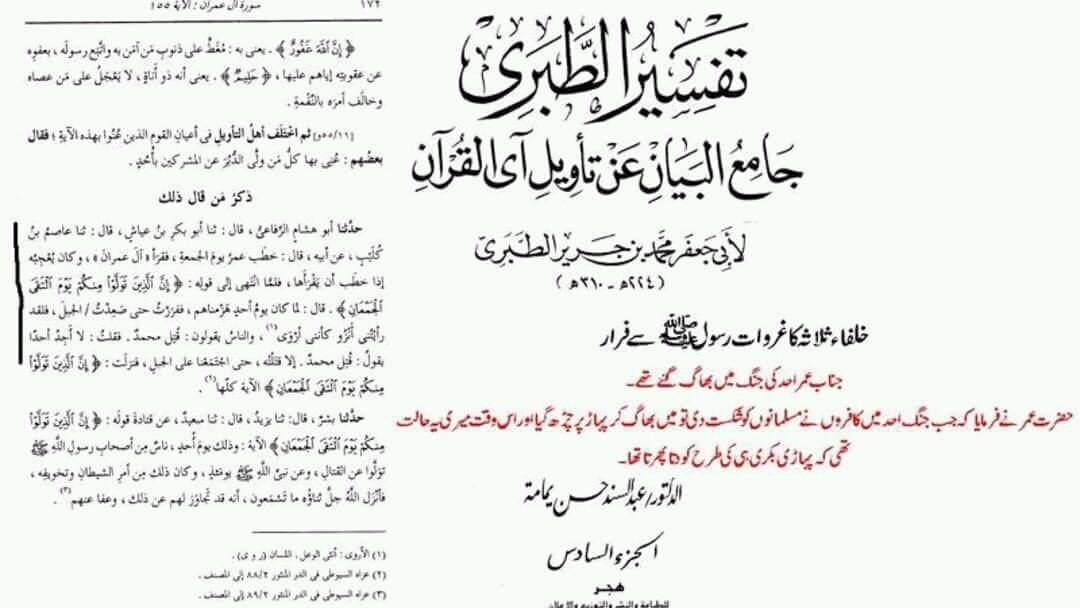 سورة آل عمران : الآية ١٥٥
١٧٢
﴿ إِنَّ اللَّهَ غَفُورٌ ﴾ . يعنى به : مُغَطٍّ على ذنوبِ مَن آمَن به واتَّبع رسولَه ، بعفوِه
عن عقوبتِه إياهم عليها ، ﴿ حَلِيمٌ ﴾ . يعنى أنه ذو أناةٍ ، لا يَعْجَلُ على مَن عصاه
وخالَف أمرَه بالنِّقْمةِ .
[١١/٥٥و] ثم اخْتَلَف أهلُ التأويلِ فى أعيانِ القومِ الذين عُنُوا بهذه الآيةِ ؛ فقال
بعضُهم : عُنِى بها كلُّ مَن ولَّى الدُّبُرَ عن المشركين بأُحُدٍ .
ذكرُ مَن قال ذلك
حدَّثنا أبو هشامٍ الرِّفاعىُّ ، قال : ثنا أبو بكرِ بنُ عياشٍ ، قال : ثنا عاصمُ بنُ
كُلَيْبٍ ، عن أبيه ، قال : خطَب عمرُ يومَ الجمعةِ ، فقرَأ « آلَ عمرانَ » ، وكان يُعْجِبُه
إذا خطَب أن يَقْرَأَها ، فلمَّا انْتَهى إلى قولِه : ﴿ إِنَّ الَّذِينَ تَوَلَّوْا مِنكُمْ يَوْمَ الْتَقَى
الْجَمْعَانِ ﴾ . قال : لمَّا كان يومُ أُحدٍ هَزَمْناهم ، ففرَرْتُ حتى صَعِدْتُ / الجبلَ ، فلقد
رأيْتُنى أَنْزُو كأننى أَرْوَى(١) ، والناسُ يقولون : قُتِل محمدٌ . فقلتُ : لا أَجِدُ أحدًا
يقولُ : قُتِل محمدٌ . إلا قتَلْتُه ، حتى اجْتَمَعْنا على الجبلِ ، فنزَلَت : ﴿ إِنَّ الَّذِينَ تَوَلَّوْا
مِنكُمْ يَوْمَ الْتَقَى الْجَمْعَانِ ﴾ الآية كلّها(٢) .
حدَّثنا بشرٌ ، قال : ثنا يزيدُ ، قال : ثنا سعيدٌ ، عن قتادةَ قولَه : ﴿ إِنَّ الَّذِينَ تَوَلَّوْا
مِنكُمْ يَوْمَ الْتَقَى الْجَمْعَانِ ﴾ الآية : وذلك يومَ أُحدٍ ، ناسٌ مِن أصحابِ رسولِ اللَّهِ ﷺ
تولَّوا عن القتالِ ، وعن نبىِّ اللَّهِ ﷺ يومَئذٍ ، وكان ذلك مِن أمرِ الشيطانِ وتخويفِه ،
فأنْزَل اللَّهُ جلَّ ثناؤُه ما تَسْمَعون ، أنه قد تَجاوَز لهم عن ذلك ، وعفا عنهم(٣) .
(١) الأروى : أنثى الوعل . اللسان (ر و ى) .
(٢) عزاه السيوطى فى الدر المنثور ٨٨/٢ إلى المصنف .
(٣) عزاه السيوطى فى الدر المنثور ٨٩/٢ إلى المصنف .
تفسير الطبرى
جامع البيان عن تأويل آى القرآن
لأبى جعفر محمد بن جرير الطبرى
( ٢٢٤ھ - ٣١٠ھ )
خلفاء ثلاثہ کا غزوات رسول ﷺ سے فرار
جناب عمر احد کی جنگ میں بھاگ گئے تھے۔
حضرت عمر نے فرمایا کہ جب جنگ احد میں کافروں نے مسلمانوں کو شکست دی تو میں بھاگ کر پہاڑ پر چڑھ گیا اور اس وقت میری یہ حالت
تھی کہ پہاڑی بکری ہی کی طرح کودتا پھرتا تھا۔
الدكتور/ عبد السند حسن يمامة
الجزء السادس
هجر
للطباعة والنشر والتوزيع والإعلان